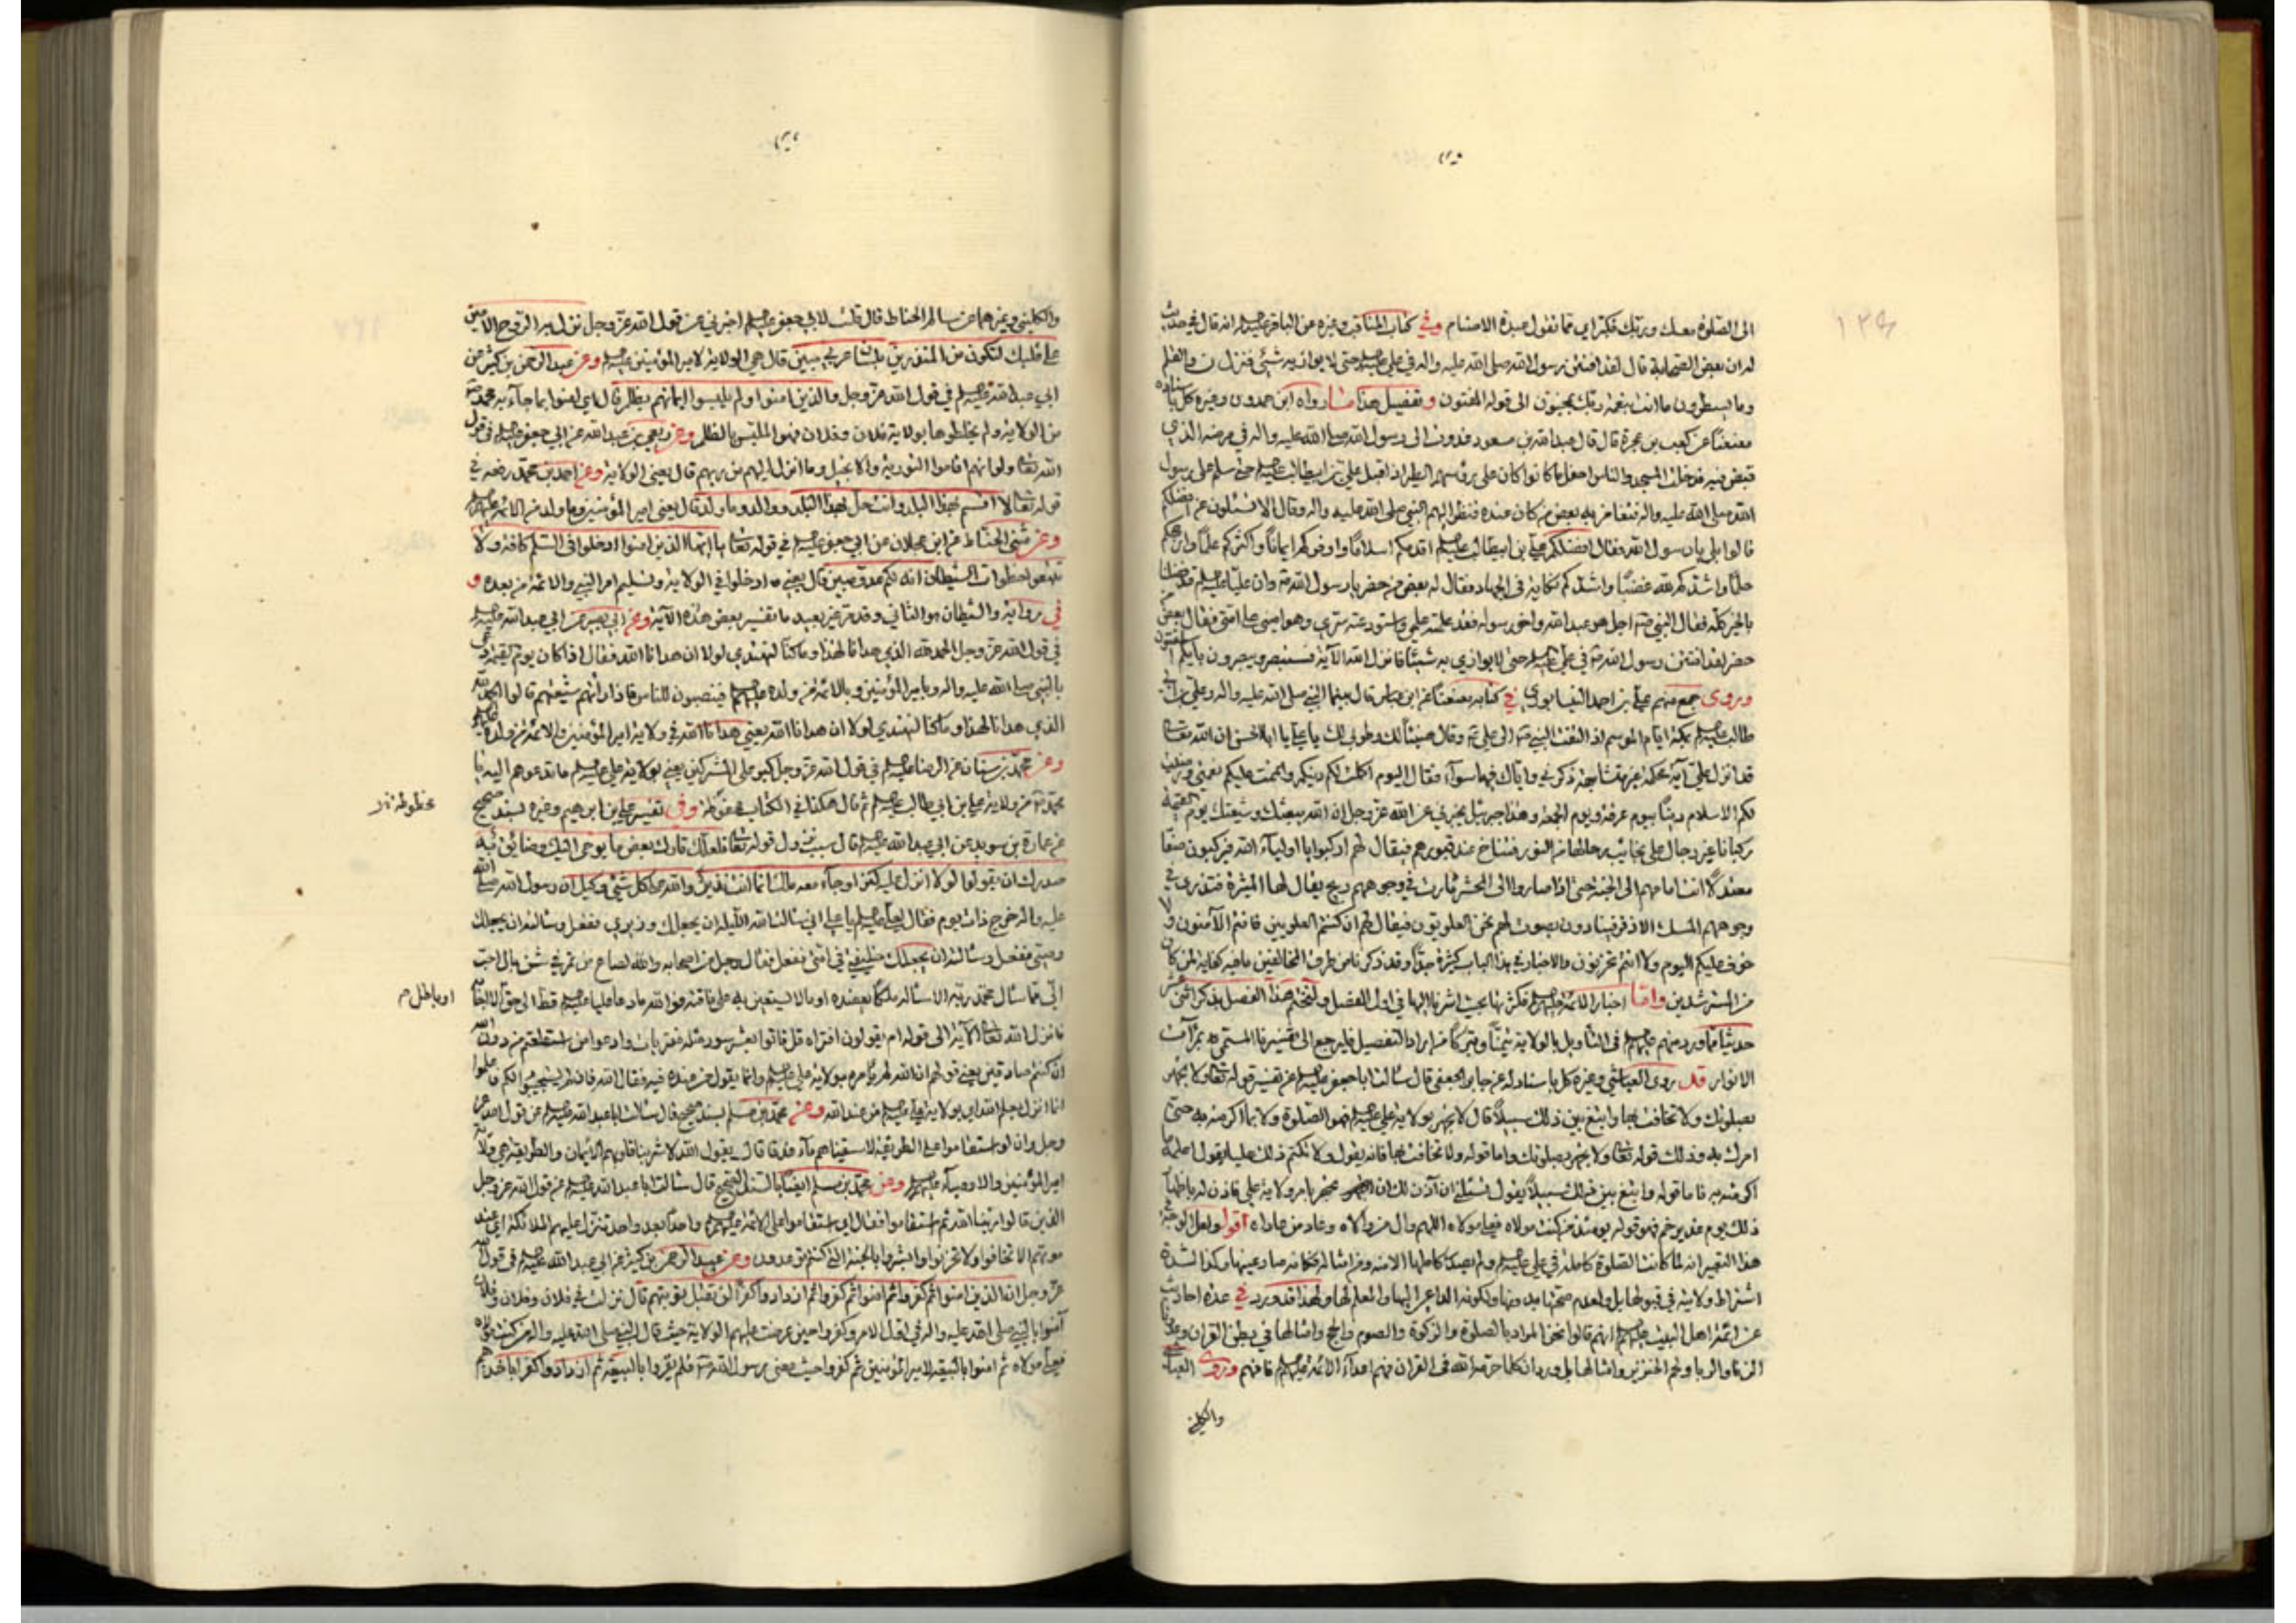 الى الصلوة معك وربك فكبر اي مما تقول عبدة الاصنام وفي كتاب المناقب وغيره عن الباقر عليه السلم انه قال في حديث
له ان بعض الصحابة قال لقد افتتن رسول الله صلى الله عليه واله في علي عليه السلم حتى لا يوازيه شيئ فنزل ن والقلم
وما يسطرون ما انت بنعمة ربك بمجنون الى قوله المفتون وتفصيل هذا ما رواه ابن حمدون وغيره كل باسناده
معنعنا عن كعب بن عجرة قال قال عبد الله بن مسعود غدوت الى رسول الله صلى الله عليه واله في مرضه الذي
قبض فيه فدخلت المسجد والناس احفل ما كانوا كان على رؤسهم الطير اذ اقبل علي بن ابيطالب عليه السلم حتى سلم على رسول
الله صلى الله عليه واله فتغامز به بعض من كان عنده فنظر اليهم النبي صلى الله عليه واله وقال الا تسئلون عن افضلكم
قالوا بلى يا رسول الله فقال افضلكم علي بن ابيطالب عليه السلم اقدمكم اسلاما واوفركم ايمانا واكثركم علما وارجحكم
حلما واشدكم لله غضبا واشدكم نكاية في الجهاد فقال له بعض من حضر يا رسول الله وان عليا عليه السلم قد فضلنا
بالخير كله فقال النبي اجل هو عبد الله واخو رسوله فقد علمته علمي واستودعته سري وهو اميني على امتي فقال بعض من
حضر لقد افتتن رسول الله في علي عليه السلم حتى لا يوازي به شيئا فانزل الله الآية فستبصر ويبصرون بايكم المفتون
وروى جمع منهم علي بن احمد النيسابوري في كتابه معنعنا عن ابن عباس قال بينما النبي صلى الله عليه واله وعلي بن ابي
طالب عليه السلم بمكة ايام الموسم اذ التفت النبي الى علي وقال هنيئا لك وطوبى لك يا علي يا ابا الحسن ان الله تعالى
قد انزل علي آية محكمة غير متشابهة ذكري واياك فيها سوآء فقال اليوم اكملت لكم دينكم واتممت عليكم نعمتي ورضيت
لكم الاسلام دينا بيوم عرفة ويوم الجمعة وهذا جبرئيل يخبرني عن الله عز وجل ان الله يبعثك وشيعتك يوم القيمة
ركبانا غير رجال على نجائب رحالها من النور فتناخ عند قبورهم فيقال لهم اركبوا يا اوليآء الله فيركبون صفا
معتدلا انت امامهم الى الجنة حتى اذا صاروا الى المحشر ثارت في وجوههم ريح يقال لها المثيرة فتذري في
وجوههم المسك الاذفر فينادون بصوت لهم نحن العلويون فيقال لهم ان كنتم العلويين فانتم الآمنون ولا
خوف عليكم اليوم ولا انتم تحزنون والاخبار في هذا الباب كثيرة جدا وقد ذكرنا من طرق المخالفين ما فيه كفاية لمن كان
من المسترشدين واما اخبار الائمة عليهم السلم فكثرتها بحيث اشرنا اليها في اول الفصل ولنختم هذا الفصل بذكر اثني عشر
حديثا مما ورد منهم عليهم السلم في التأويل بالولاية تيمنا وتبركا فمن اراد التفصيل فليرجع الى تفسيرنا المسمى بمرآت
الانوار قد روى العياشي وغيره كل باسناد له عن جابر الجعفي قال سئالت ابا جعفر عليه السلم عن تفسير قوله تعالى ولا تجهر
بصلوتك ولا تخافت بها وابتغ بين ذلك سبيلا قال لا تجهر بولاية علي عليه السلم فهو الصلوة ولا بما اكرمته به حتى
امرك به وذلك قوله تعالى ولا تجهر بصلوتك واما قوله ولا تخافت بها فانه يقول ولا تكتم ذلك عليا يقول اعلمه ما
اكرمته به فاما قوله وابتغ بين ذلك سبيلا يقول تسئلني ان آذن لك ان تجهر بامر ولاية علي فاذن له باظهار
ذلك يوم غدير خم فهو قوله يومئذ من كنت مولاه فعلي مولاه اللهم وال من والاه وعاد من عاداه اقول ولعل الوجه في
هذا التعبير انه لما كانت الصلوة كاملة في علي عليه السلم ولم يصل كاملها الا منه ومن امثاله فكانه صار عينها وكذا لشدة
اشتراط ولايته في قبولها بل ولعدم صحتها بدونها ولكونه الداعي اليها والمعلم لها ولهذا قد ورد في عدة احاديث
عن ائمة اهل البيت عليهم السلم انهم قالوا نحن المراد بالصلوة والزكوة والصوم والحج وامثالها في بطن القران وعدونا
الزنا والربا ولحم الخنزير وامثالها بل ورد ان كلما حرم الله في القران فهم اعدآء الائمة عليهم السلم فافهم وروى العياشي
والكليني
والكليني وغيرهما عن سالم الحناط قال قلت لابي جعفر عليه السلم اخبرني عن قول الله عز وجل نزل به الروح الامين
على قلبك لتكون من المنذرين بلسان عربي مبين قال هي الولاية لامير المؤمنين عليه السلم وعن عبد الرحمن بن كثير عن
ابي عبد الله عليه السلم في قول الله عز وجل والذين امنوا ولم يلبسوا ايمانهم بظلم قال اي امنوا بما جآء به محمد
من الولاية ولم يخلطوها بولاية فلان وفلان فهو الملبس بالظلم وعن ربعي بن عبد الله عن ابي جعفر عليه السلم في قول
الله تعالى ولو انهم اقاموا التورية والانجيل وما انزل اليهم من ربهم قال يعني الولاية وعن احمد بن محمد رفعه في
قوله تعالى لا اقسم بهذا البلد وانت حل بهذا البلد ووالد وما ولد قال يعني امير المؤمنين وما ولد من الائمة عليهم السلم
وعن مثنى الحناط عن ابن عجلان عن ابي جعفر عليه السلم في قوله تعالى يا ايها الذين امنوا ادخلوا في السلم كافة ولا
تتبعوا خطوات الشيطان انه لكم عدو مبين قال يعني ادخلوا في الولاية وتسليم امر النبي والائمة من بعده و
في رواية والشيطان هو الثاني وقد مر غير بعيد ما تفسير بعض هذه الآية وعن ابي بصير عن ابي عبد الله عليه السلم
في قول الله عز وجل الحمد لله الذي هدانا لهذا وما كنا لنهتدي لولا ان هدانا الله فقال اذا كان يوم القيمة دعي
بالنبي صلى الله عليه واله وبامير المؤمنين وبالائمة من ولده عليهم السلم فينصبون للناس فاذا رأتهم شيعتهم قالوا الحمد لله
الذي هدانا لهذا وما كنا لنهتدي لولا ان هدانا الله يعني هدانا الله في ولاية امير المؤمنين والائمة من ولده عليهم السلم
وعن محمد بن سنان عن الرضا عليه السلم في قول الله عز وجل كبر على المشركين يعني بولاية علي عليه السلم ما تدعوهم اليه يا
محمد من ولاية علي بن ابي طالب عليه السلم ثم قال هكذا في الكتاب محفوظة وفي تفسير علي بن ابرهيم وغيره بسند صحيح
مخطوطة
عن عمارة بن سويد عن ابي عبد الله عليه السلم قال سبب نزول قوله تعالى فلعلك تارك بعض ما يوحى اليك وضائق به
صدرك ان يقولوا لولا انزل عليه كنز او جآء معه ملك انما انت نذير والله على كل شيئ وكيل ان رسول الله صلى الله
عليه واله خرج ذات يوم فقال لعلي عليه السلم يا علي اني سئالت الله الليلة ان يجعلك وزيري ففعل وسئالته ان يجعلك
وصيي ففعل وسئالته ان يجعلك خليفتي في امتي ففعل فقال رجل من اصحابه والله لصاع من تمر في شن بال احب
الي مما سئال محمد ربه الا سئاله ملكا يعضده او مالا يستعين به على فاقته فو الله ما دعا عليا عليه السلم قط الى حق الا اجابه
او باطل
فانزل الله تعالى الآية الى قوله ام يقولون افتراه قل فاتوا بعشر سور مثله مفتريات وادعوا من استطعتم من دون الله
ان كنتم صادقين يعني قولهم ان الله لم يأمره بولاية علي عليه السلم وانما يقول من عنده فيه فقال الله فان لم يستجيبوا لكم فاعلموا
انما انزل بعلم الله اي بولاية علي عليه السلم من عند الله وعن محمد بن مسلم بسند صحيح قال سئالت ابا عبد الله عليه السلم عن قول الله عز
وجل وان لو استقاموا على الطريقة لاسقيناهم مآء غدقا قال يقول الله لاشربنا قلوبهم الايمان والطريقة هي ولاية
امير المؤمنين والاوصيآء عليهم السلم وعن محمد بن مسلم ايضا بالسند الصحيح قال سئالت ابا عبد الله عليه السلم عن قول الله عز وجل
الذين قالوا ربنا الله ثم استقاموا فقال اي استقاموا على الائمة عليهم السلم واحدا بعد واحد تتنزل عليهم الملائكة اي عند
موتهم الا تخافوا ولا تحزنوا وابشروا بالجنة التي كنتم توعدون وعن عبد الرحمن بن كثير عن ابي عبد الله عليه السلم في قول الله
عز وجل ان الذين امنوا ثم كفروا ثم امنوا ثم كفروا ثم ازدادوا كفرا لن تقبل توبتهم قال نزلت في فلان وفلان وفلان
آمنوا بالنبي صلى الله عليه واله في اول الامر وكفروا حين عرضت عليهم الولاية حيث قال النبي صلى الله عليه واله من كنت مولاه
فعلي مولاه ثم امنوا بالبيعة لامير المؤمنين ثم كفروا حيث مضى رسول الله فلم يقروا بالبيعة ثم ازدادوا كفرا باخذهم